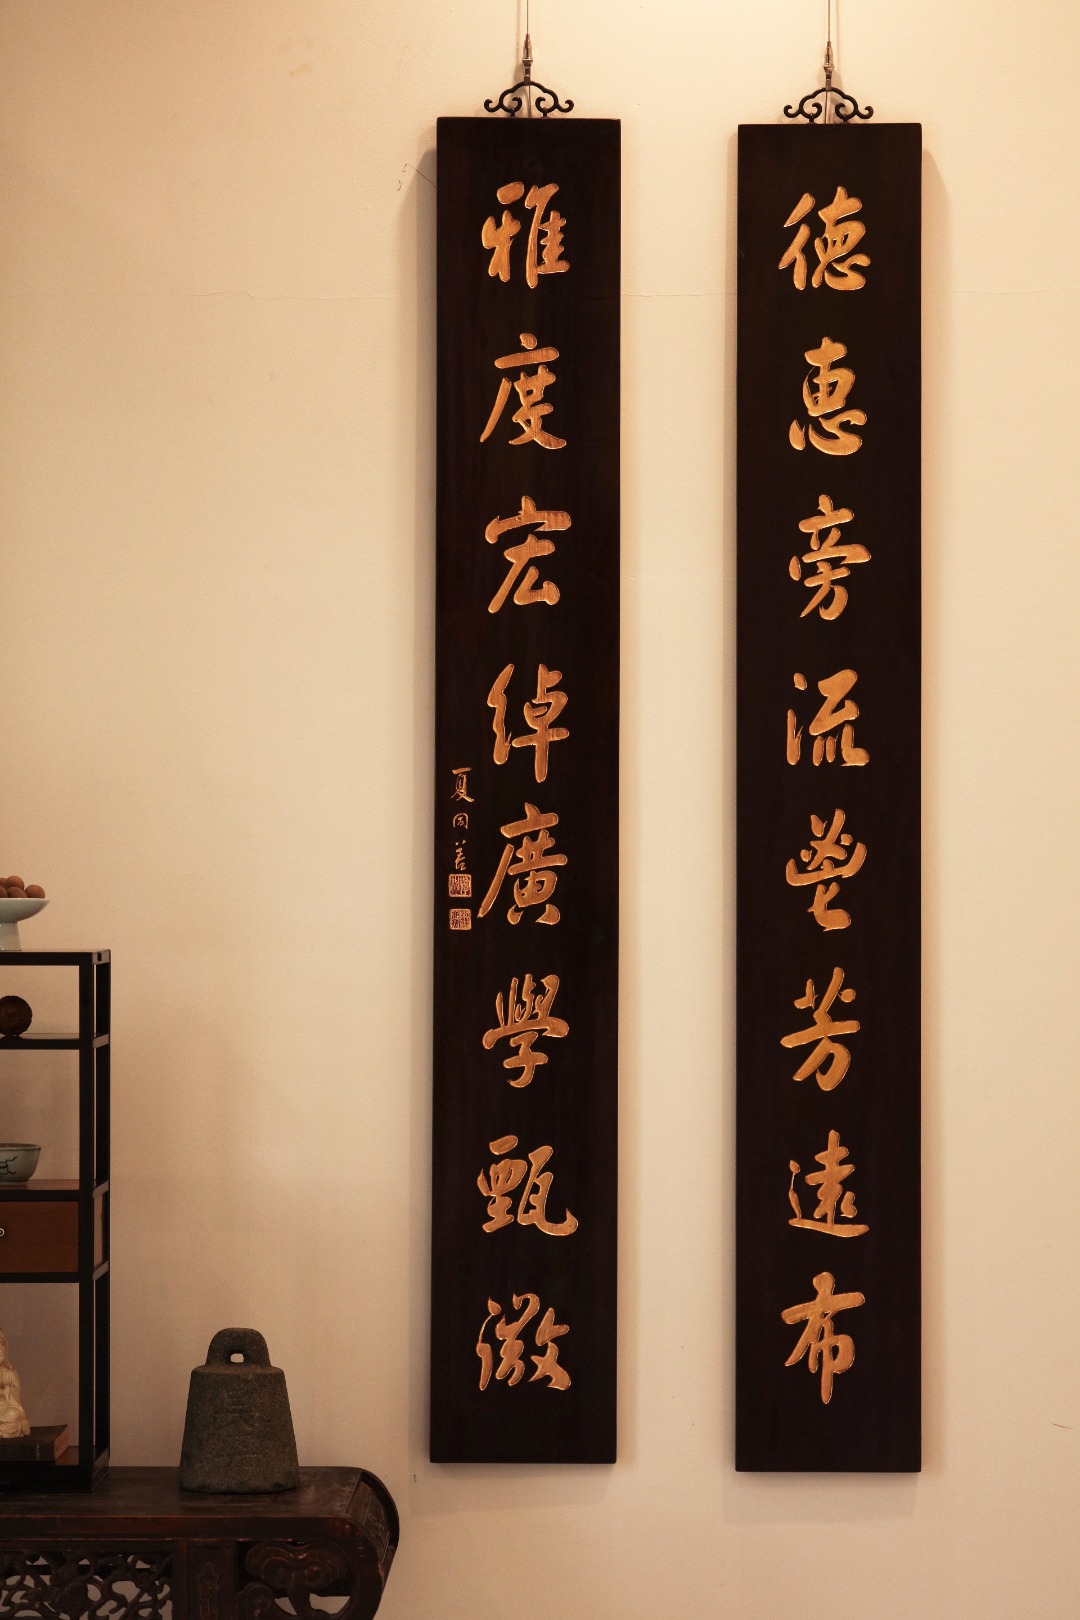 德惠旁流馨芳遠布
雅度宏綽廣學甄微
夏同善